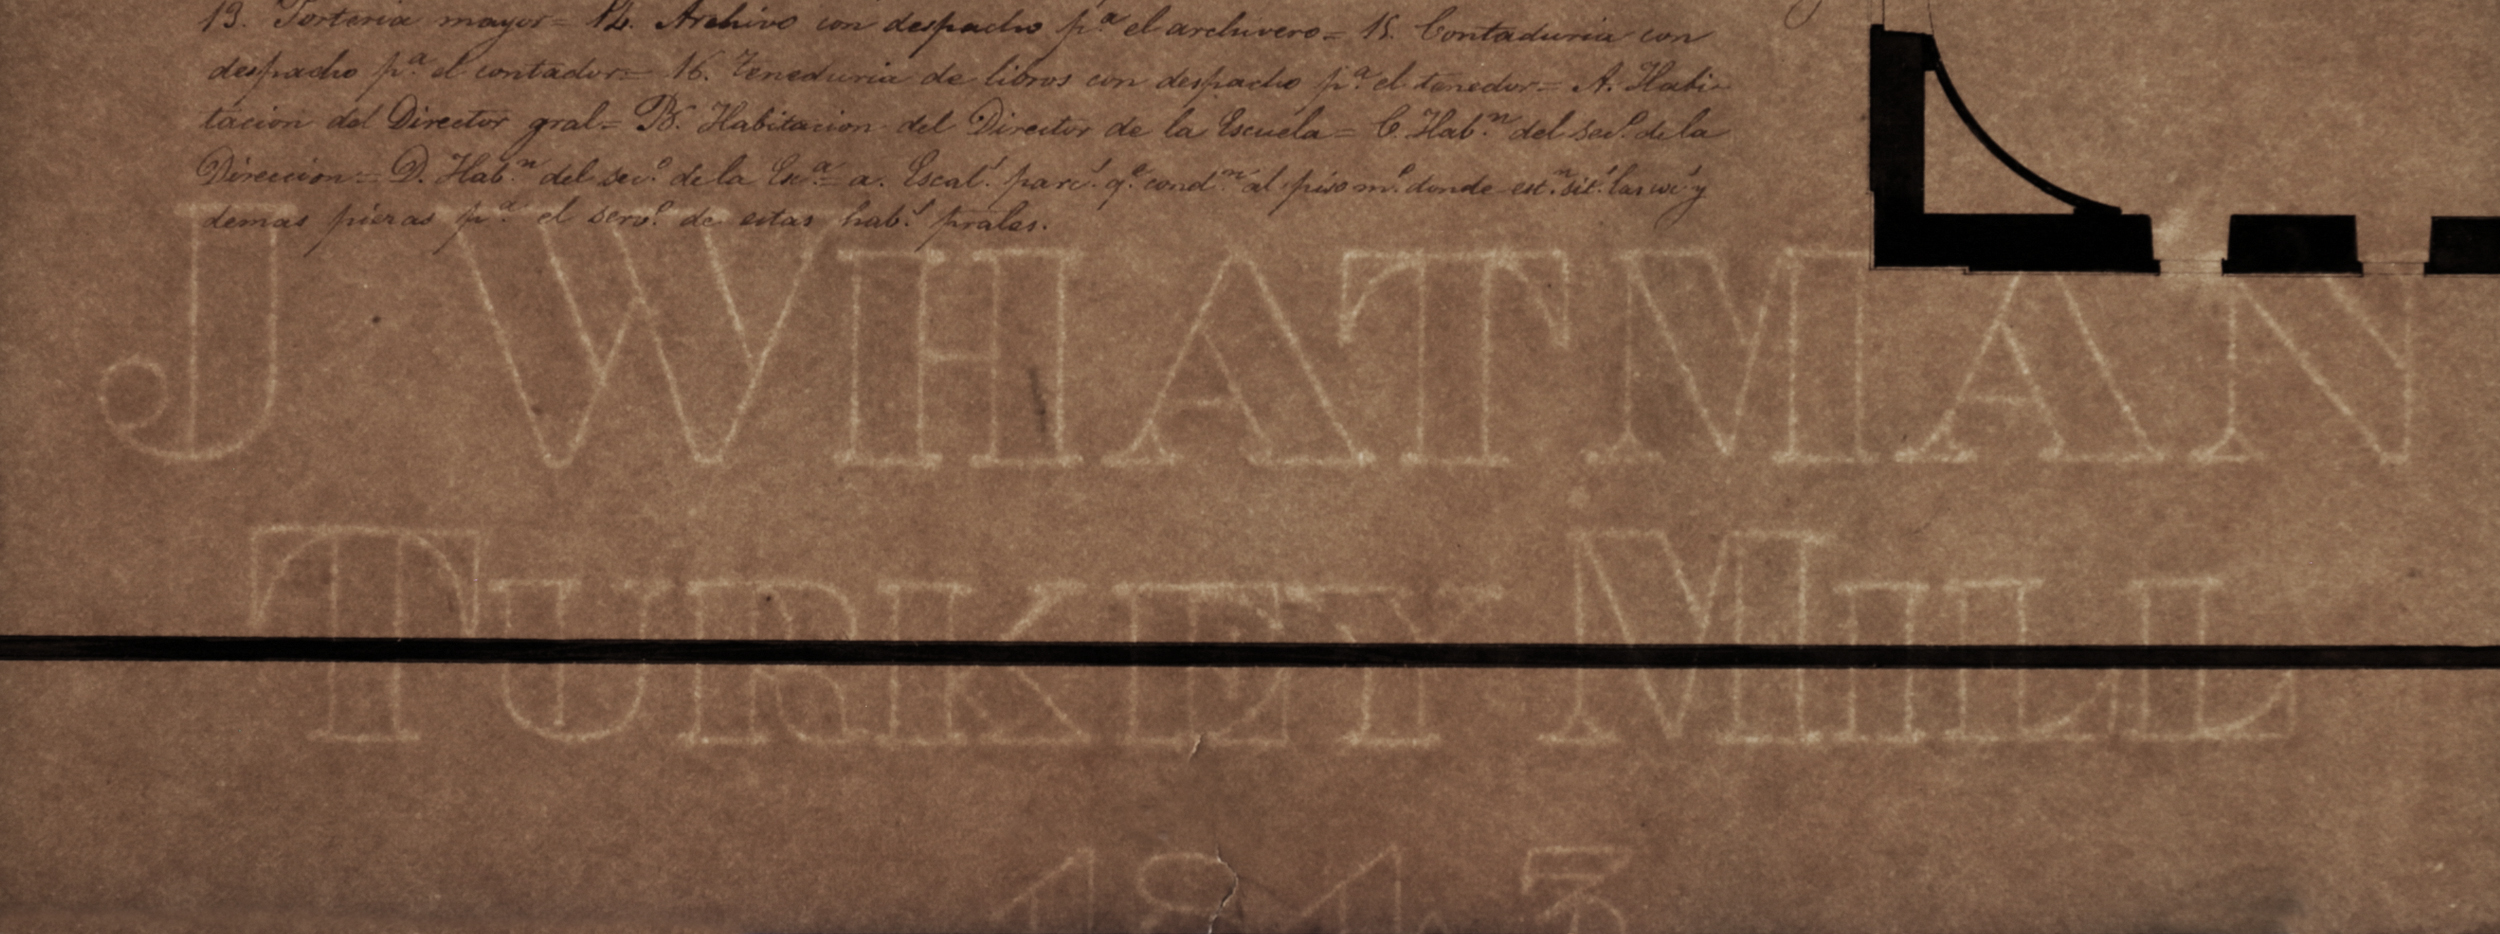 13. Porteria mayor= 14. Archivo con despacho p.ª el archivero= 15. Contaduria con
despacho p.ª el contador= 16. Teneduria de libros con despacho p.ª el tenedor= A. Habi-
tacion del Director gral= B. Habitacion del Director de la Escuela= C. Hab.ⁿ del sec.º de la
Direccion= D. Hab.ⁿ del sec.º de la Es.ª= a. Escal.ˢ parc.ˢ q.ᵉ cond.ⁿ al piso m.º donde est.ⁿ sit.ˢ las y
demas piezas p.ª el serv.º de estas hab.ˢ prales.
J WHATMAN
TURKEY MILL
1843